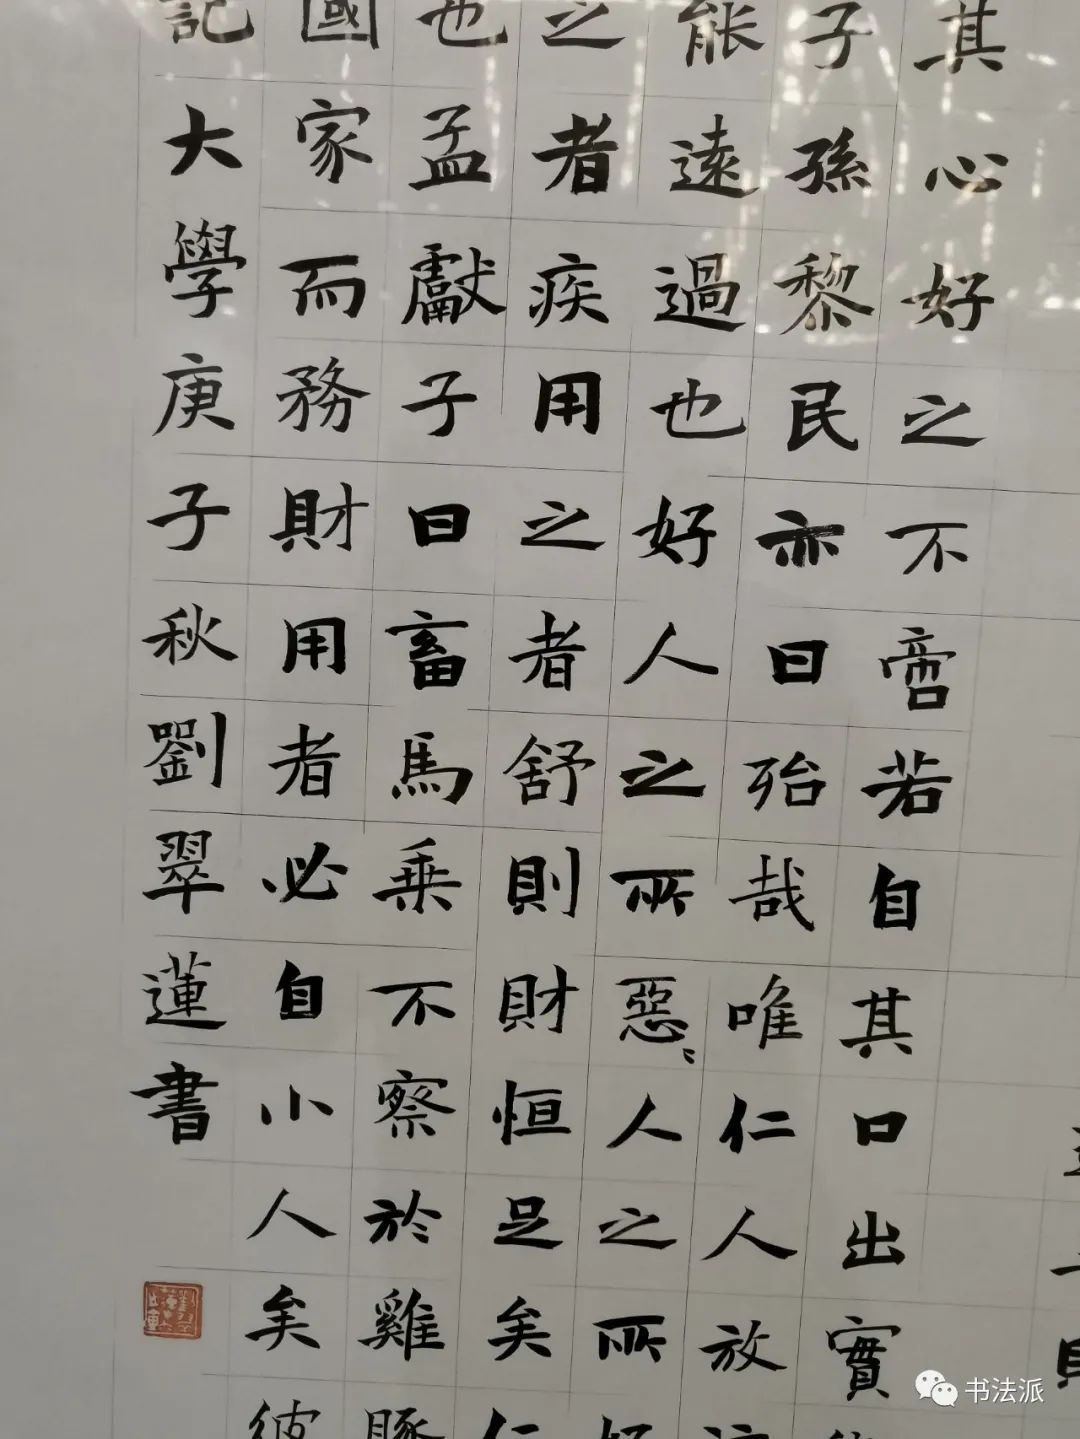 其心好之不啻若自其口出實
子孫黎民亦曰殆哉唯仁人放
能遠過也好人之所惡〻人之所好
之者疾用之者舒則財恒足矣仁
也孟獻子曰畜馬乘不察於雞豚
國家而務財用者必自小人矣彼
記大學庚子秋劉翠蓮書
书法派